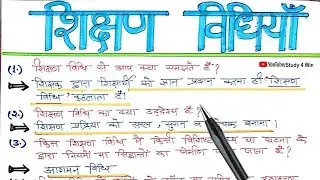 शिक्षण विधियाँ
YouTube/Study 4 Win
(1.) शिक्षण विधि से आप क्या समझते हैं?
शिक्षक द्वारा शिक्षार्थी को ज्ञान प्रदान करना ही शिक्षण
विधि कहलाता है।
(2.) शिक्षण विधि का क्या उद्देश्य है?
शिक्षण प्रक्रिया को सरल, सुगम व बनाना।
(3.) किस शिक्षण विधि में किसी विशिष्ट या घटना के
द्वारा नियमों या सिद्धान्तों का निर्माण जाता है?
आगमन विधि